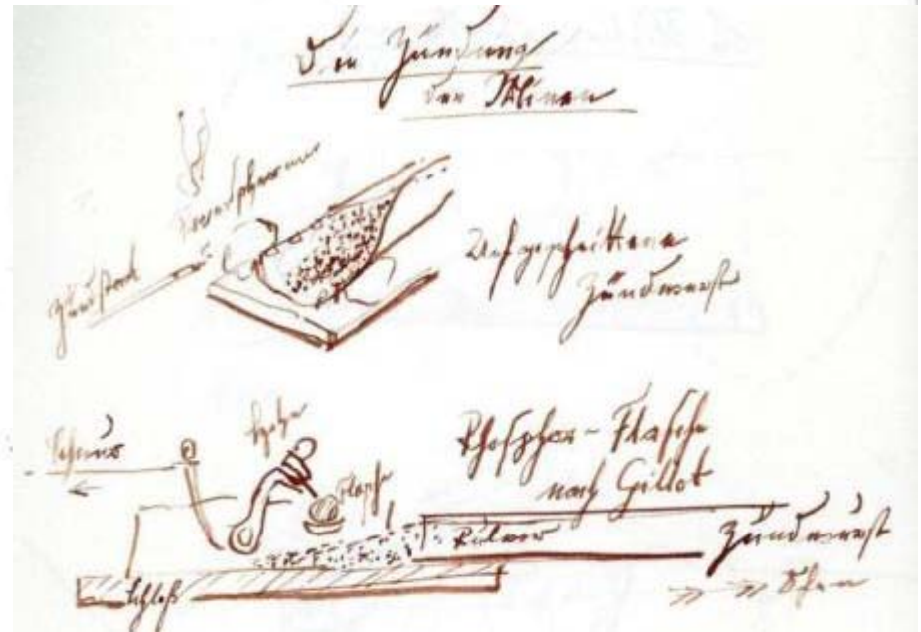 Die Zündung
der Minen
Feuerschwamm
Zündstock
Aufgeschnittene
Zündwurst
Schnur
Hahn
Flasche
Phosphor-Flasche
nach Gillot
Pulver
Zündwurst
Schloß
Ofen